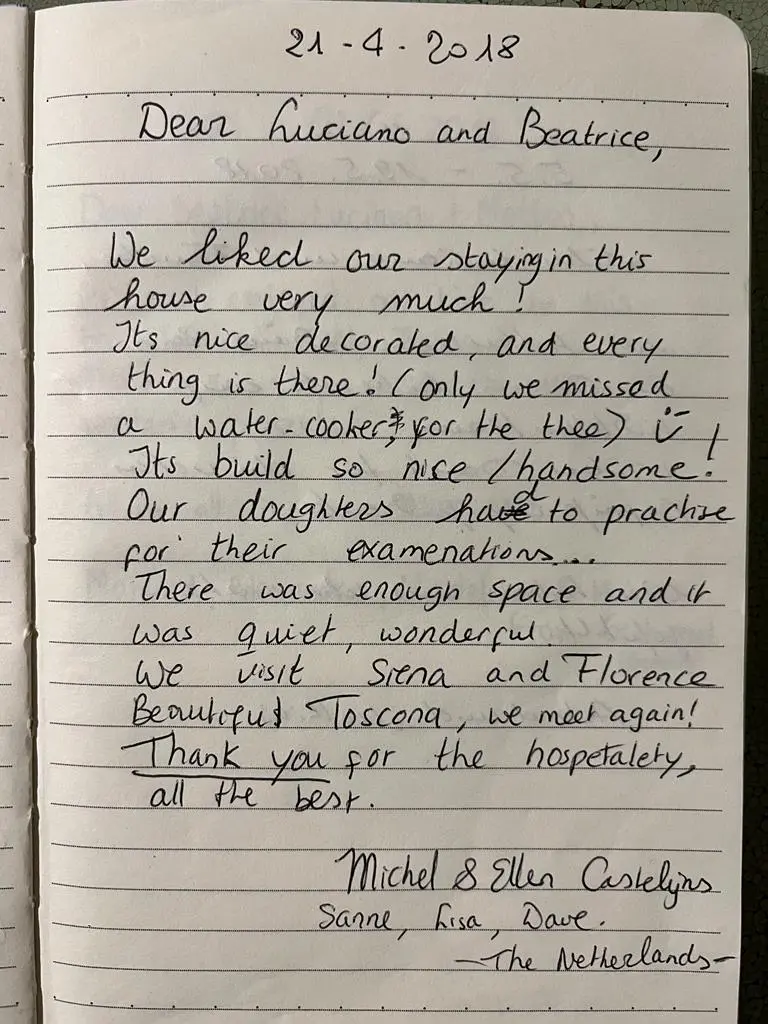 21 - 4 - 2018
Dear Luciano and Beatrice,
We liked our staying in this
house very much!
Its nice decorated, and every
thing is there! (only we missed
a water-cooker, for the thee) !
Its build so nice / handsome!
Our doughters had to practise
for their examenations...
There was enough space and it
was quiet, wonderful.
We visit Siena and Florence
Beautiful Toscona, we meet again!
Thank you for the hospetalety,
all the best.
Michel & Ellen Castelijns
Sanne, Lisa, Dave.
- The Netherlands -